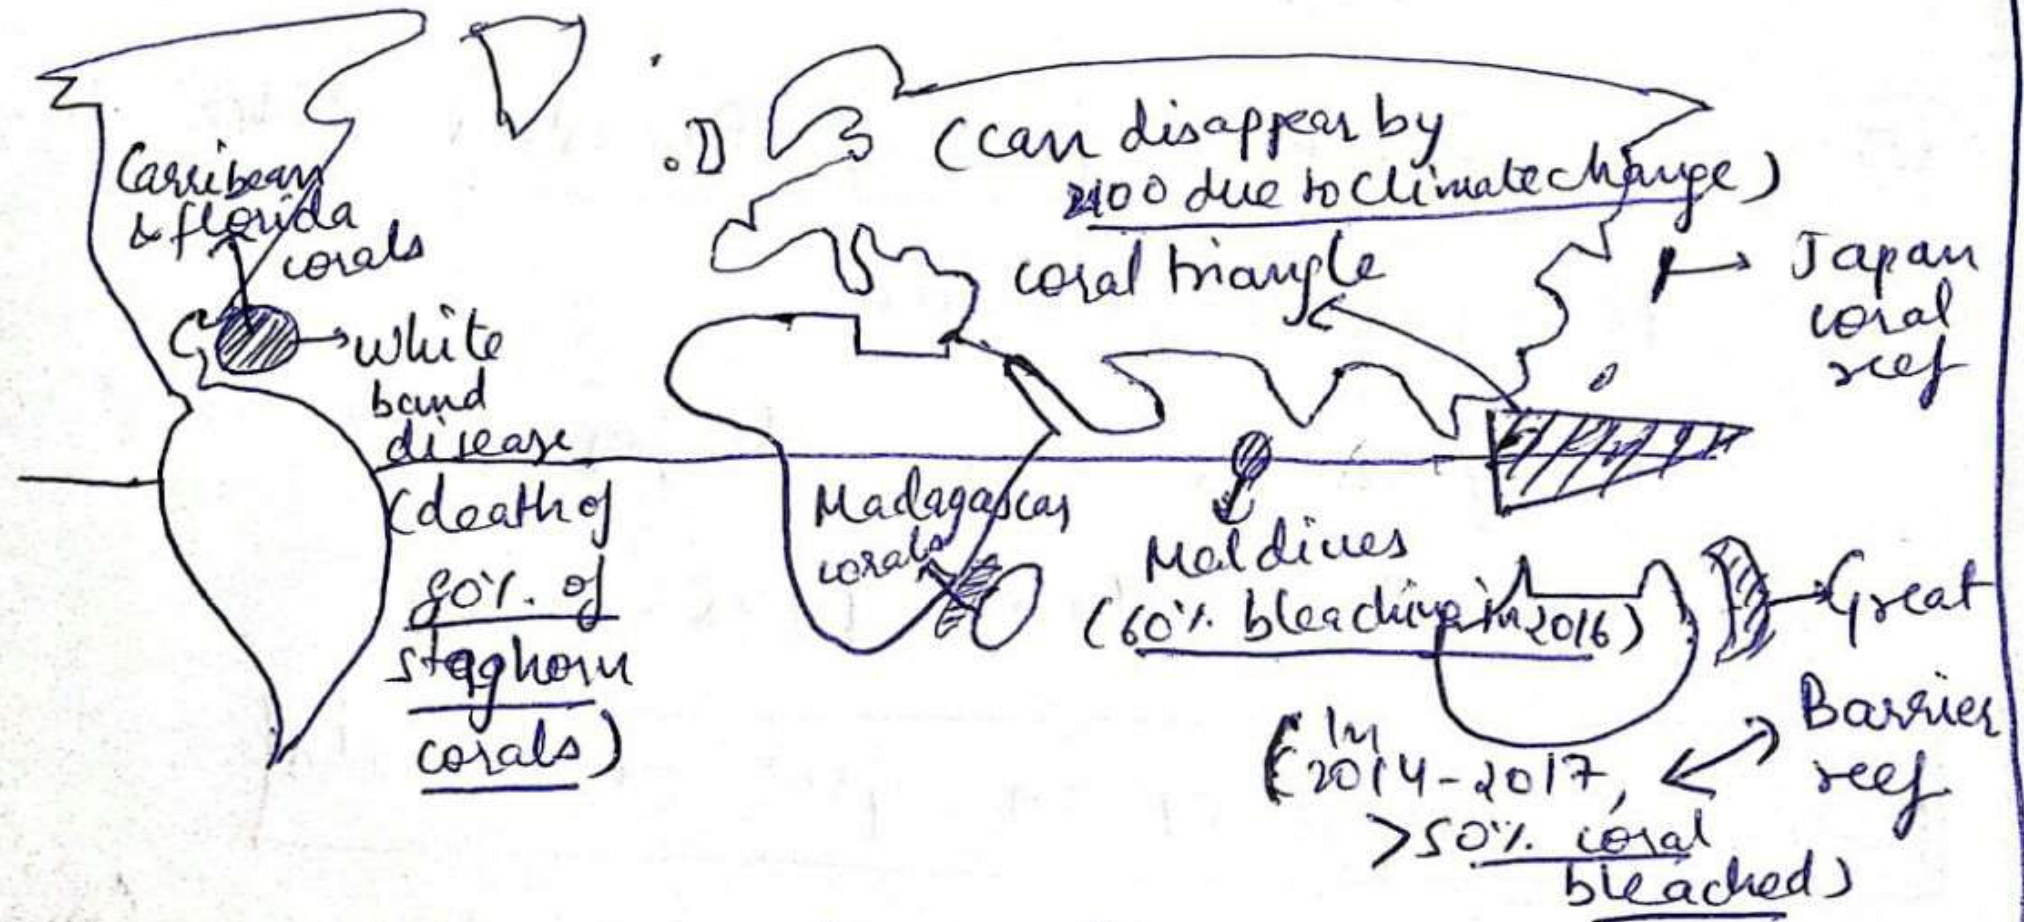 Carribean
& florida
corals
White
band
disease
(death of
80% of
staghorn
corals)
(can disappear by
2100 due to Climate change)
coral triangle
Japan
coral
reef
Madagascar
corals
Maldives
(60% bleaching in 2016)
Great
Barrier
reef
(In
2014-2017,
>50% coral
bleached)